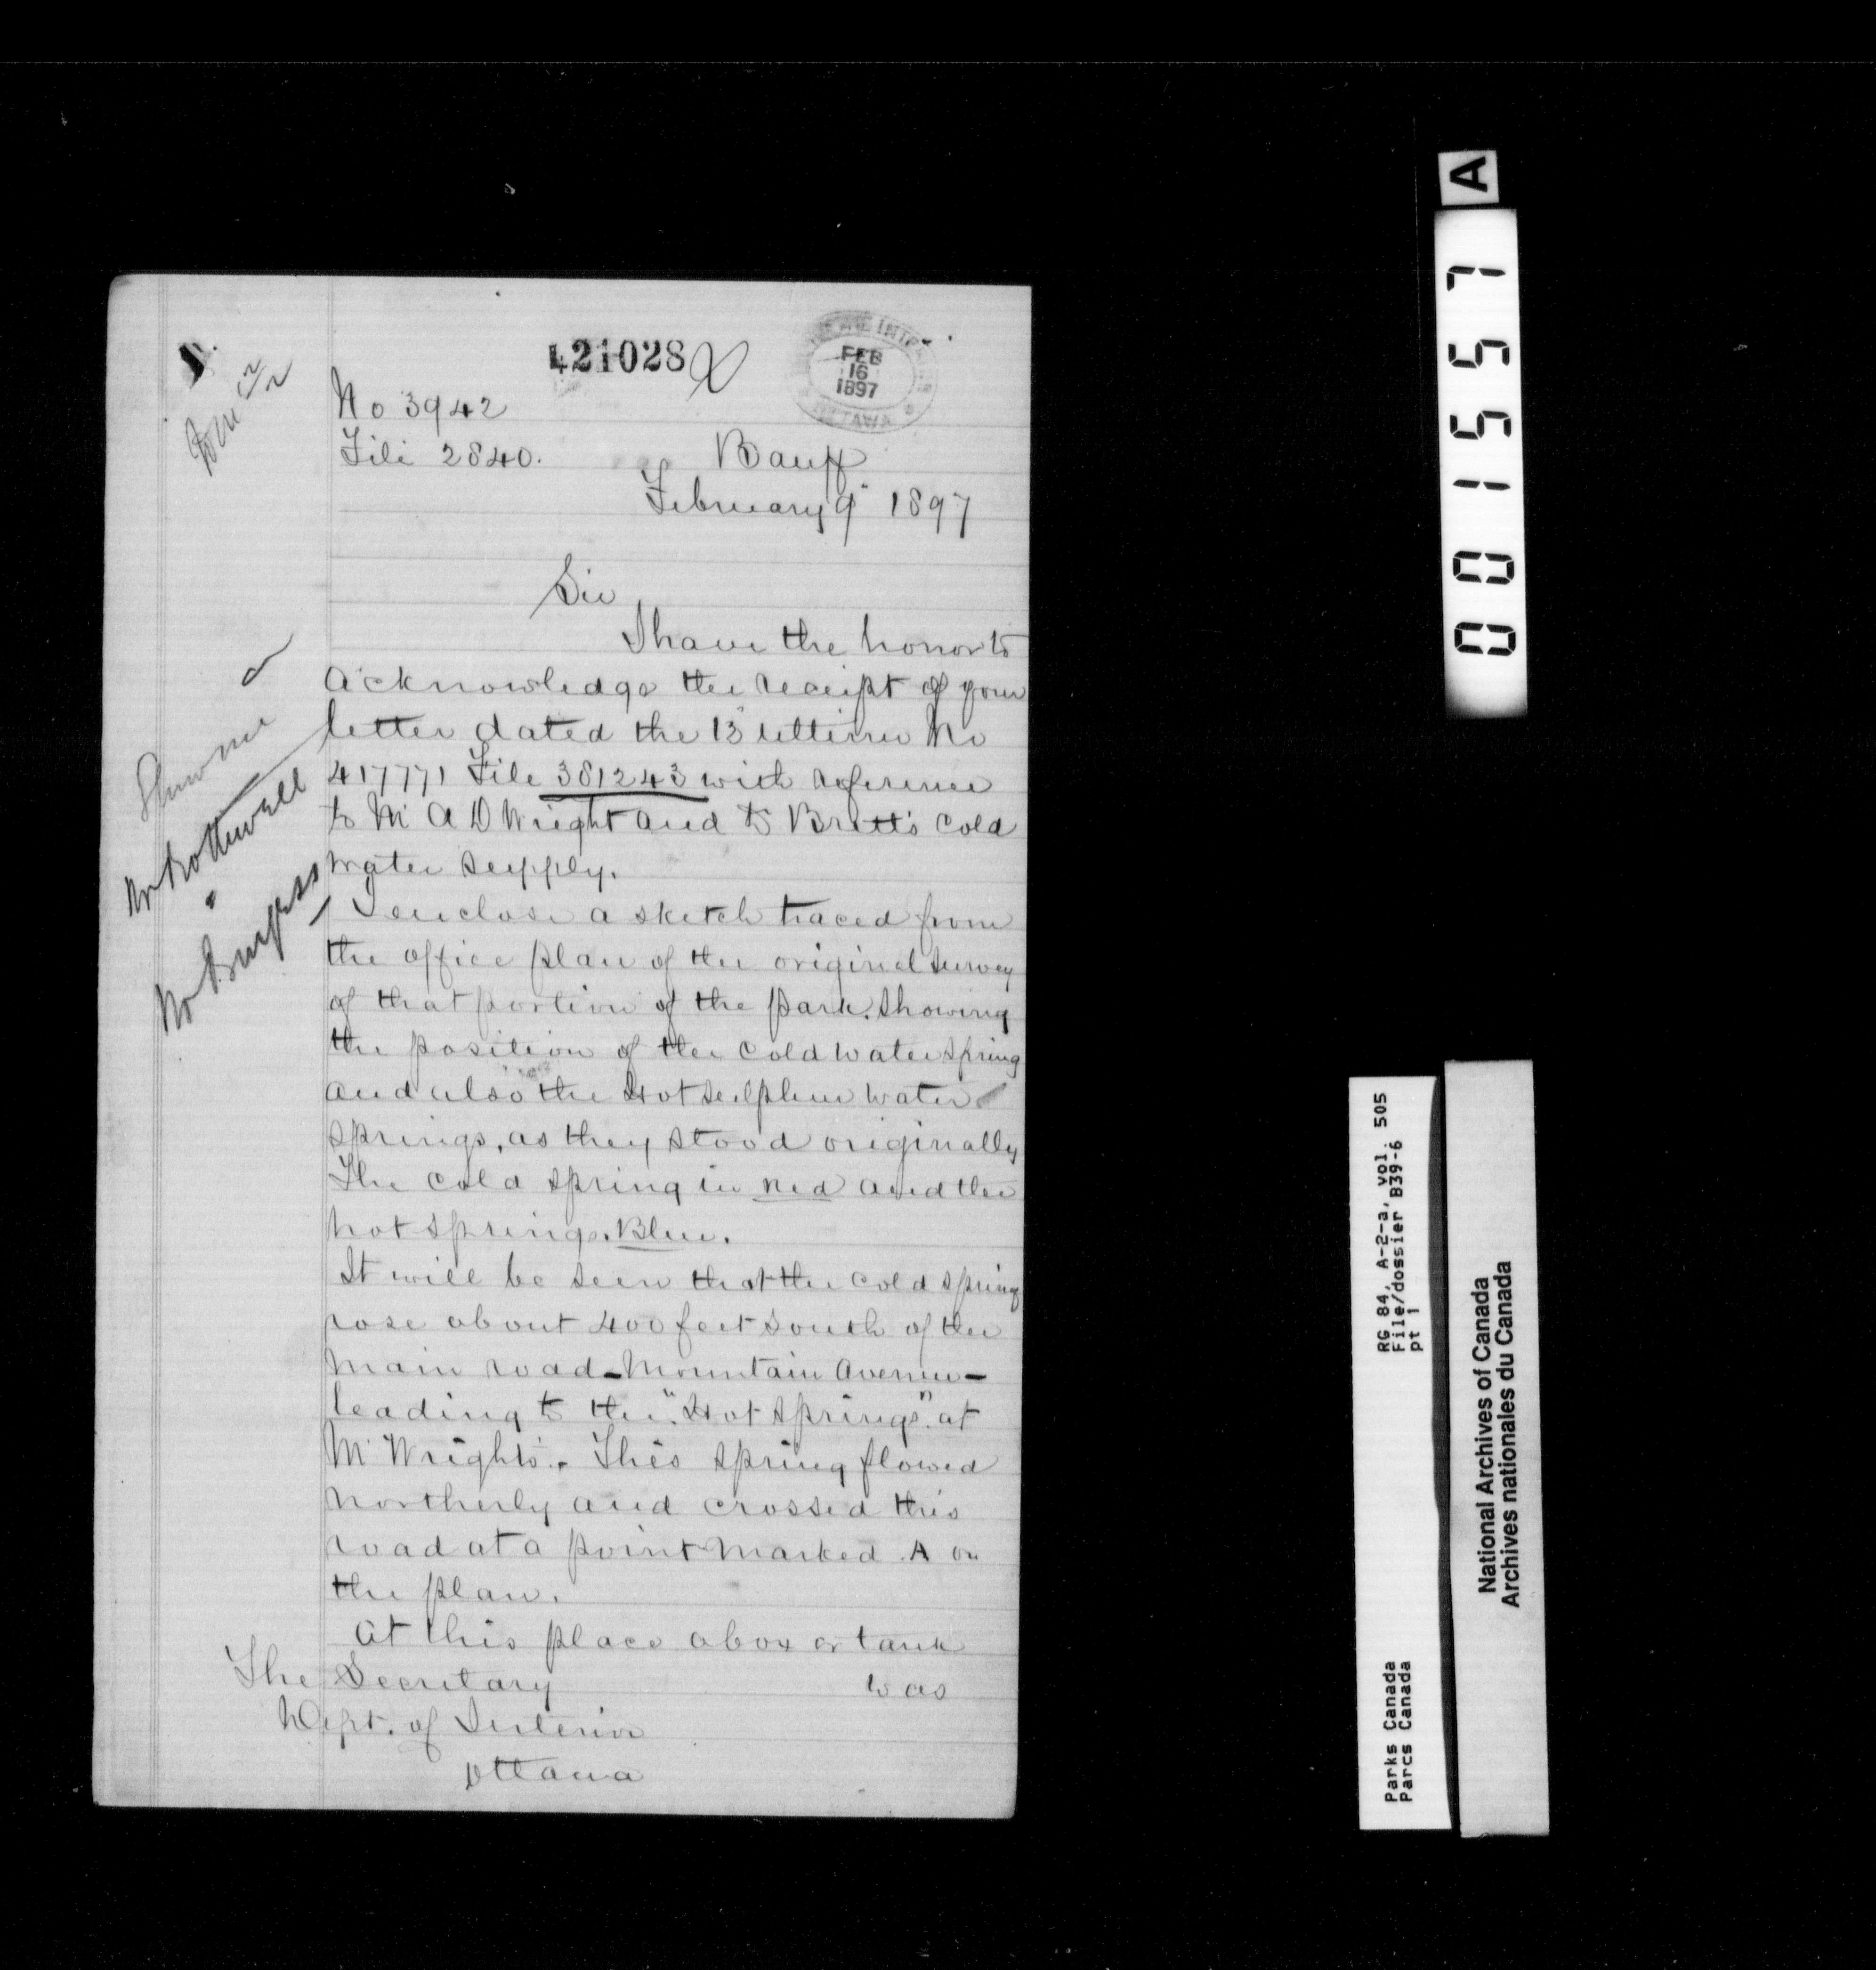 421028
FEB
16
1897
OTTAWA
No 3942
File 2840.
Banff
February 9" 1897
Sir
I have the honor to
acknowledge the receipt of your
letter dated the 13 ultimo No
417771 File 381243 with reference
to Mr A D Wright and to Brett's cold
water supply.
I enclose a sketch traced from
the office plan of the original survey
of that portion of the park. Showing
the position of the cold water spring
and also the Hot Sulphur water
springs, as they stood originally
The cold spring in red and the
hot springs. Blue.
It will be seen that the cold spring
rose about 400 feet south of the
main road - Mountain Avenue -
leading to the "Hot Springs" at
Mr Wright's. This spring flowed
northerly and crossed this
road at a point marked A on
the plan.
At this place a box or tank
was
The Secretary
Dept. of Interior
Ottawa
Mr Rothwell
Mr Burgess
A
001557
RG 84, A-2-a, vol. 505
File/dossier B39-6
pt 1
Parks Canada
Parcs Canada
National Archives of Canada
Archives nationales du Canada